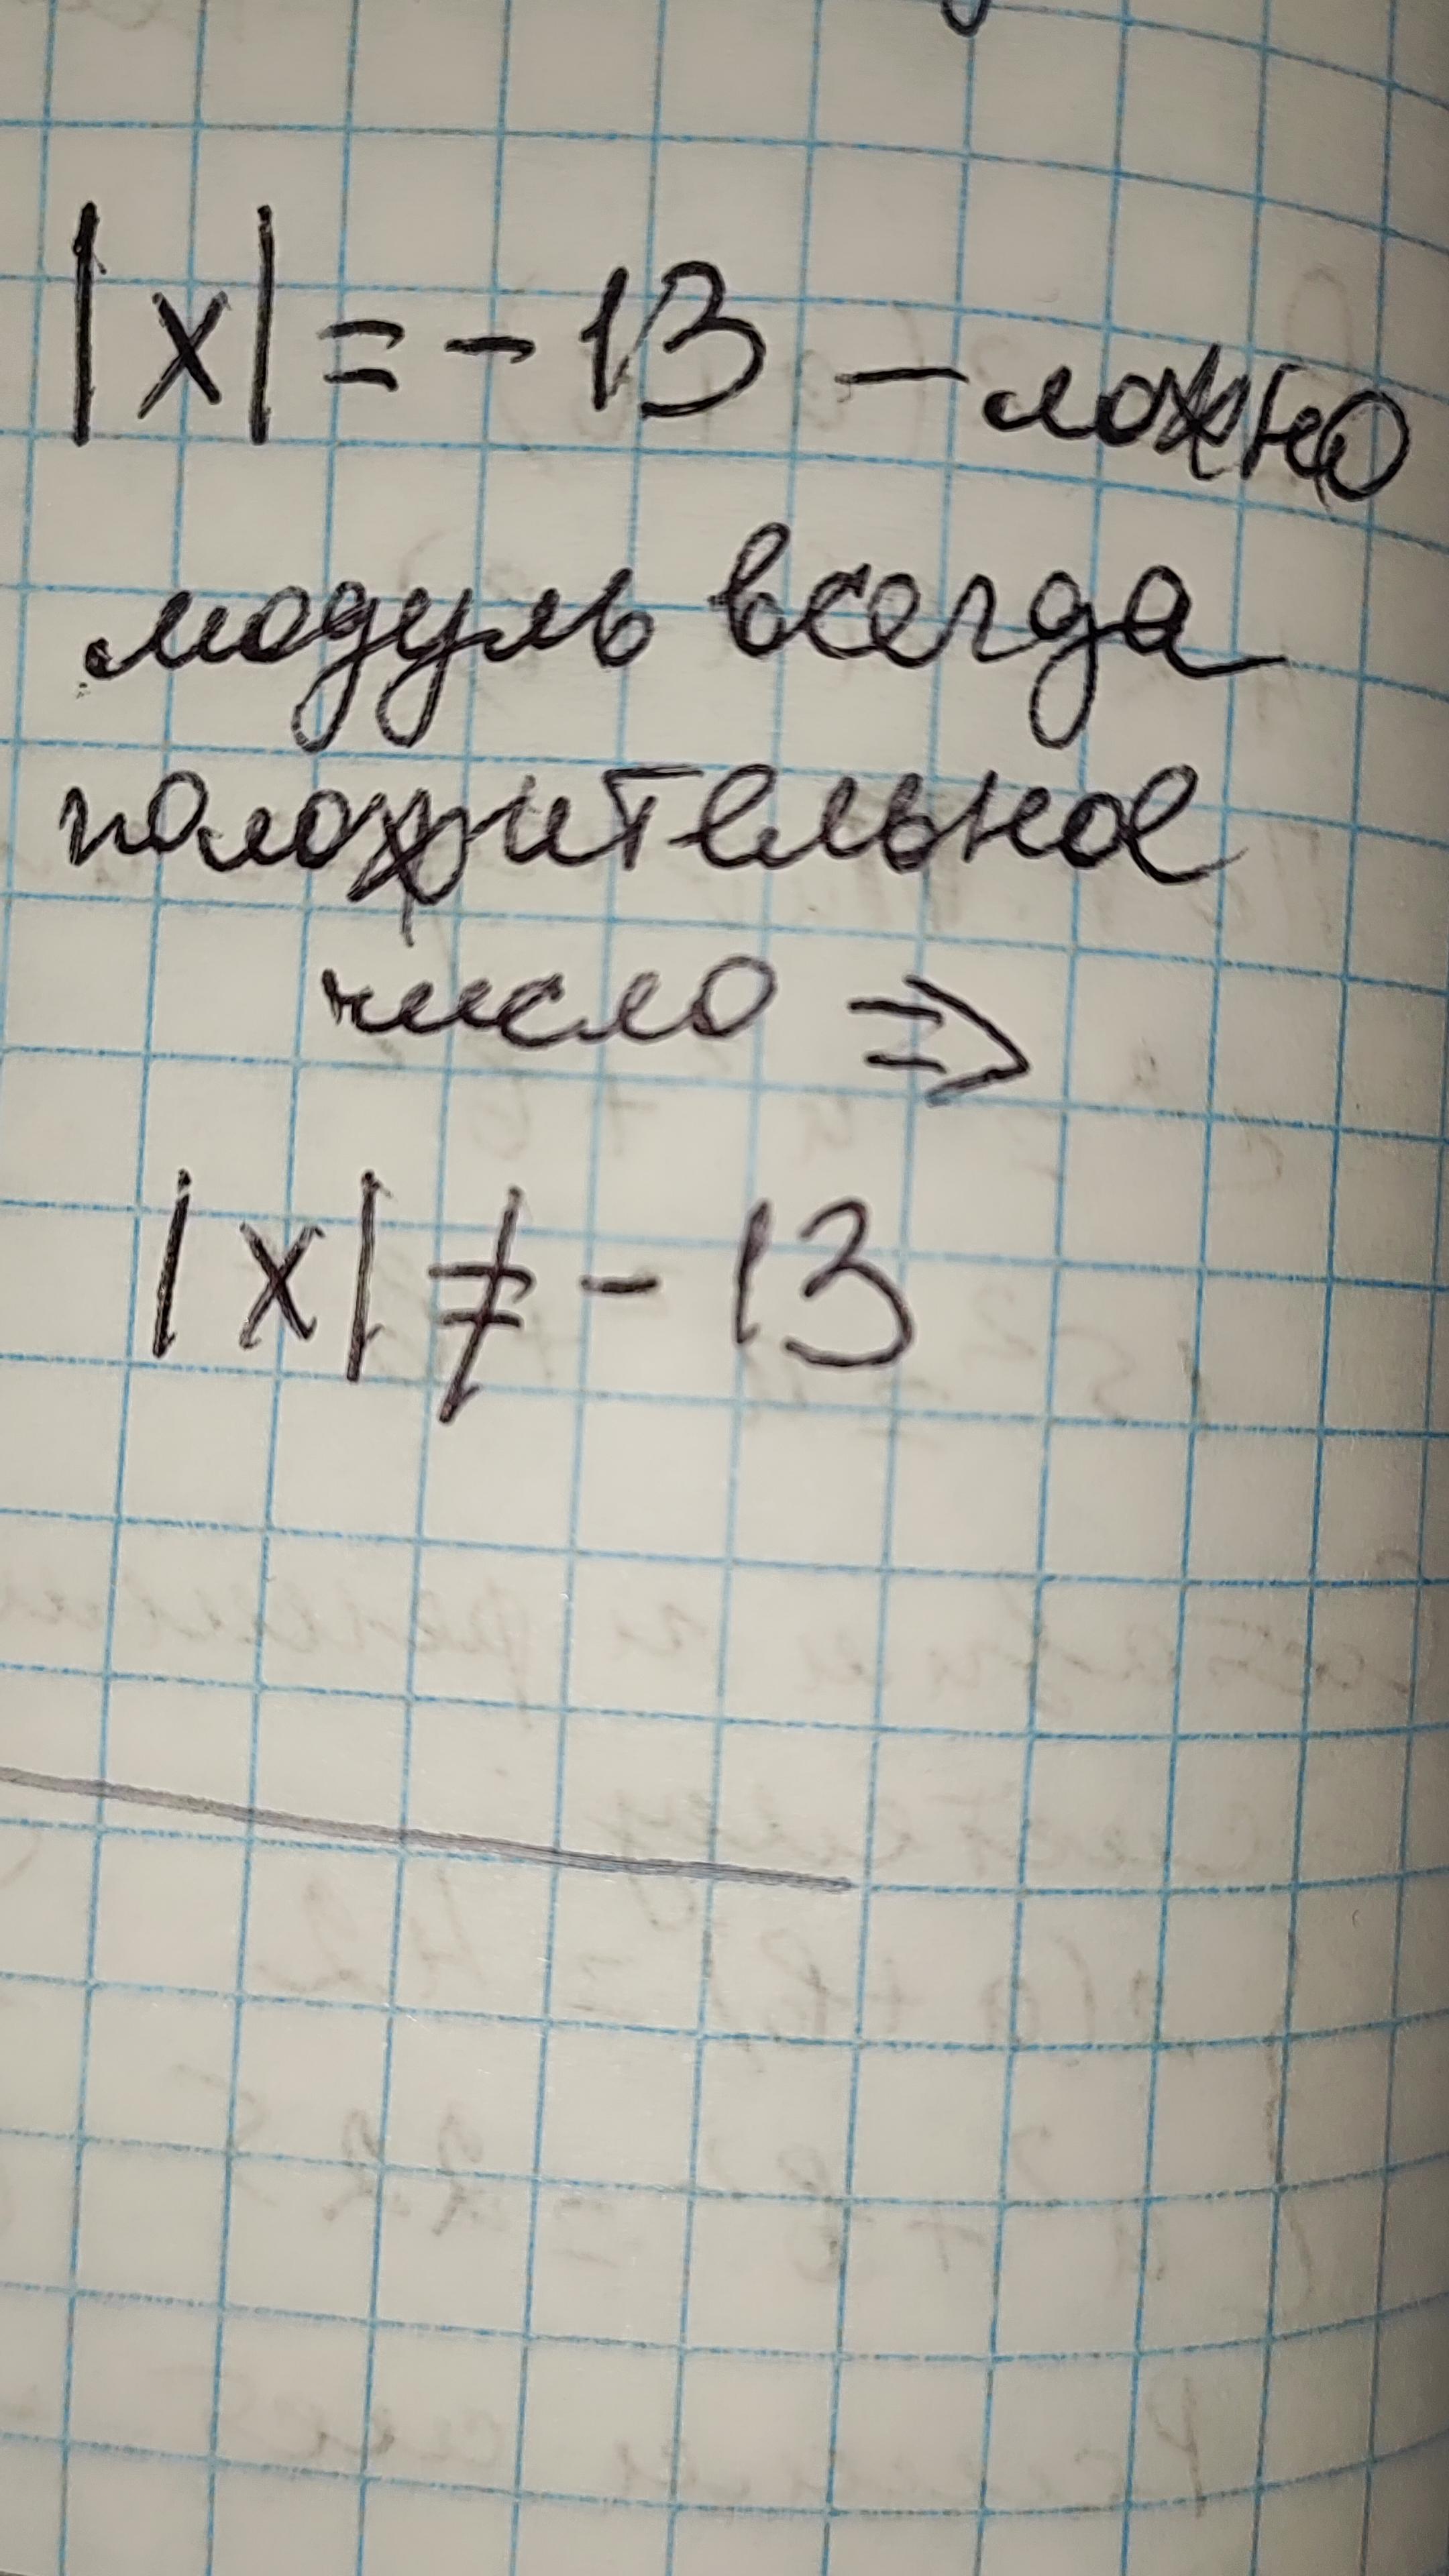 |x| = - 13 — ложно
модуль всегда
положительное
число ⇒
|x| ≠ - 13